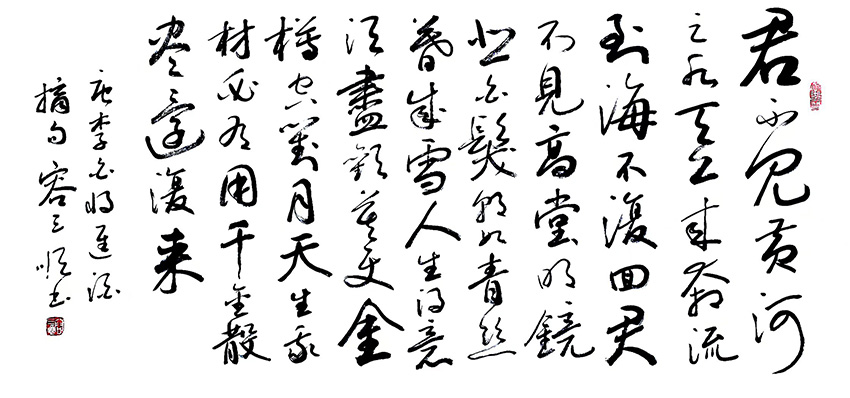 君不见黄河
之水天上来奔流
到海不復回君
不見高堂明鏡
悲白髮朝如青丝
暮成雪人生得意
须盡歡莫使金
樽空對月天生我
材必有用千金散
尽還復来
唐李白将進酒
摘句容三順书